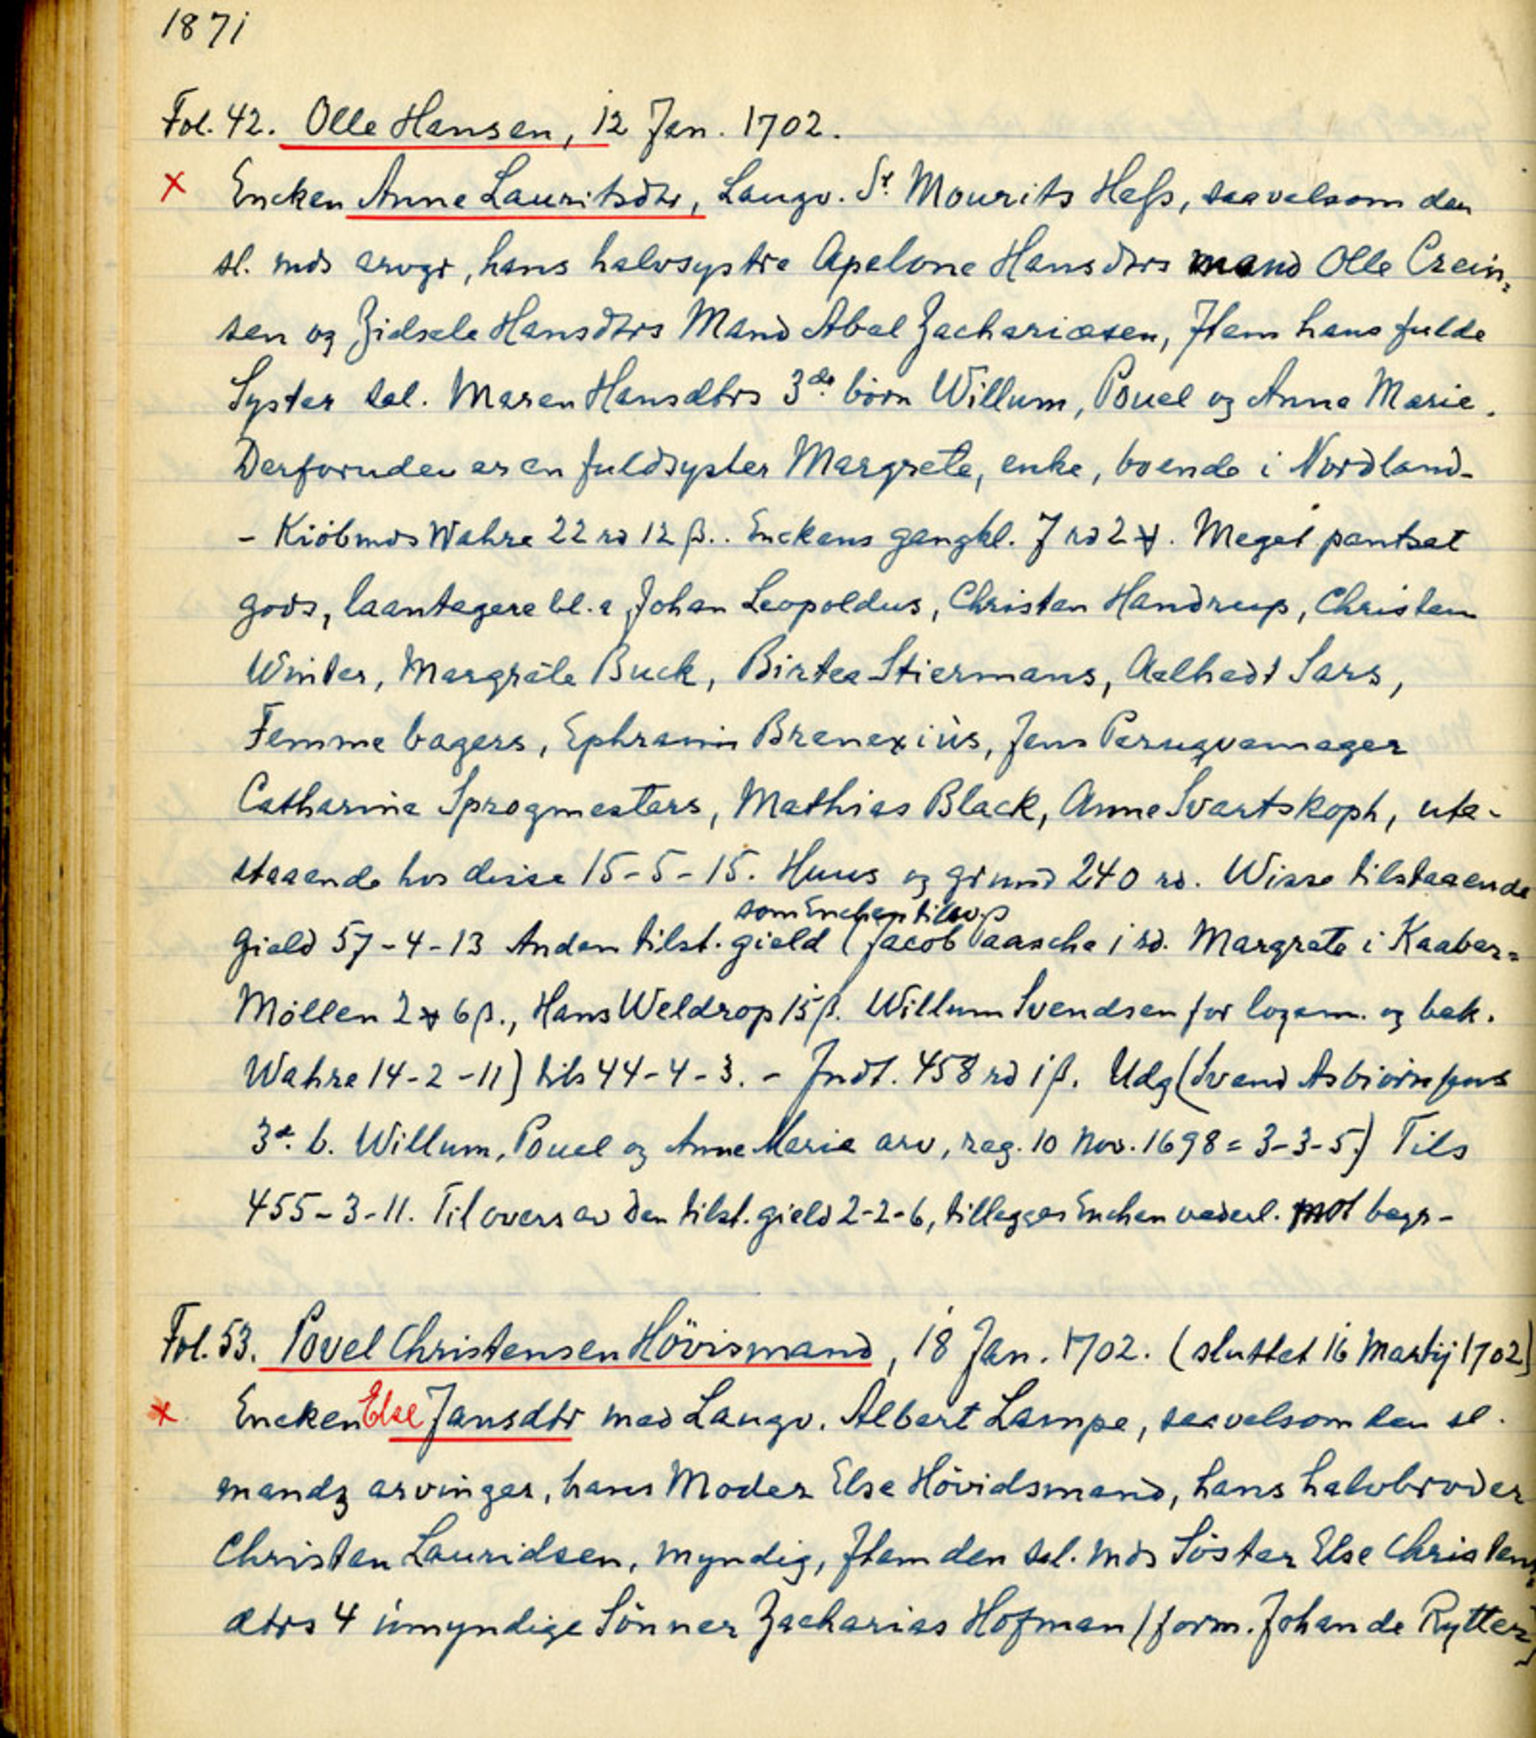 1871
Fol. 42. Olle Hansen, 12 Jan. 1702.
x Encken Anne Lauritsdtr, Laugv. Sr Mourits Hess, saavelsom den
sl. mds arvgr, hans halvsystre Apelone Hansdtrs mand Olle Crein=
sen og Zidsele Hansdtrs Mand Abel Zachariæsen, Item hans fulde
Syster sal. Maren Hansdtrs 3de börn Willum, Pouel og Anne Marie.
Derforuden er en fuldsyster Margrete, enke, boende i Nordland-
- Kiöbmds Wahre 22 rd 12 β.. Enckens gangkl. 7 rd 2 ℔. Meget pantsat
gods, laantagere bl. a Johan Leopoldus, Christen Handrup, Christen
Winter, Margrete Buck, Birtea Stiermans, Aelhedt Sars,
Femme bagers, Ephraim Brenexius, Jens Peruqvemager
Catharine Sprogmesters, Mathias Black, Anne Svartskoph, ute-
staaende hos disse 15-5-15. Huus og grund 240 rd. Wisse tilstaaende
som Enchen tilsvβ
Gield 57-4-13 Anden tilst. gield (Jacob Paasche 1 rd. Margrete i Kaaber=
Möllen 2 ℔ 6 β., Hans Weldrop 15 β. Willum Svendsen for logem. og bek.
Wahre 14-2-11) tils 44-4-3. - Indt. 458 rd 1 β. Udg (Svend Asbiörnsens
3de b. Willum, Pouel og Anne Marie arv, reg. 10 Nov. 1698 = 3-3-5) Tils
455-3-11. Til overs av den tilst. gield 2-2-6, tillegges Enchen vederl. mot begr-
Fol. 53. Povel Christensen Hövismand, 18 Jan. 1702. (sluttet 16 Martij 1702)
x Encken Else Jansdtr med Laugv. Albert Lampe, saavelsom den sl.
mandz arvinger, hans Moder Else Hövidsmand, hans halvbroder
Christen Lauridsen, myndig, Item den sal. mds Söster Else Christens
dtrs 4 umyndige Sönner Zacharias Hofman (form. Johan de Rytter)